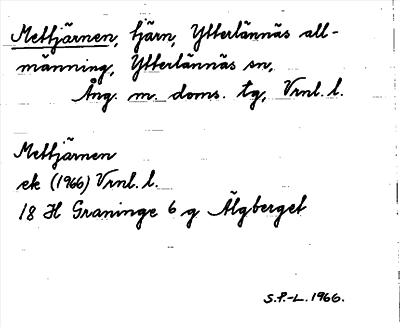 Mettjärnen, tjärn, Ytterlännäs all-
männing, Ytterlännäs sn,
Ång. m. doms. tg, Vrnl. l.
Mettjärnen
ek (1966) Vrnl. l.
18 H Graninge 6 g Älgberget
S.P.-L. 1966.